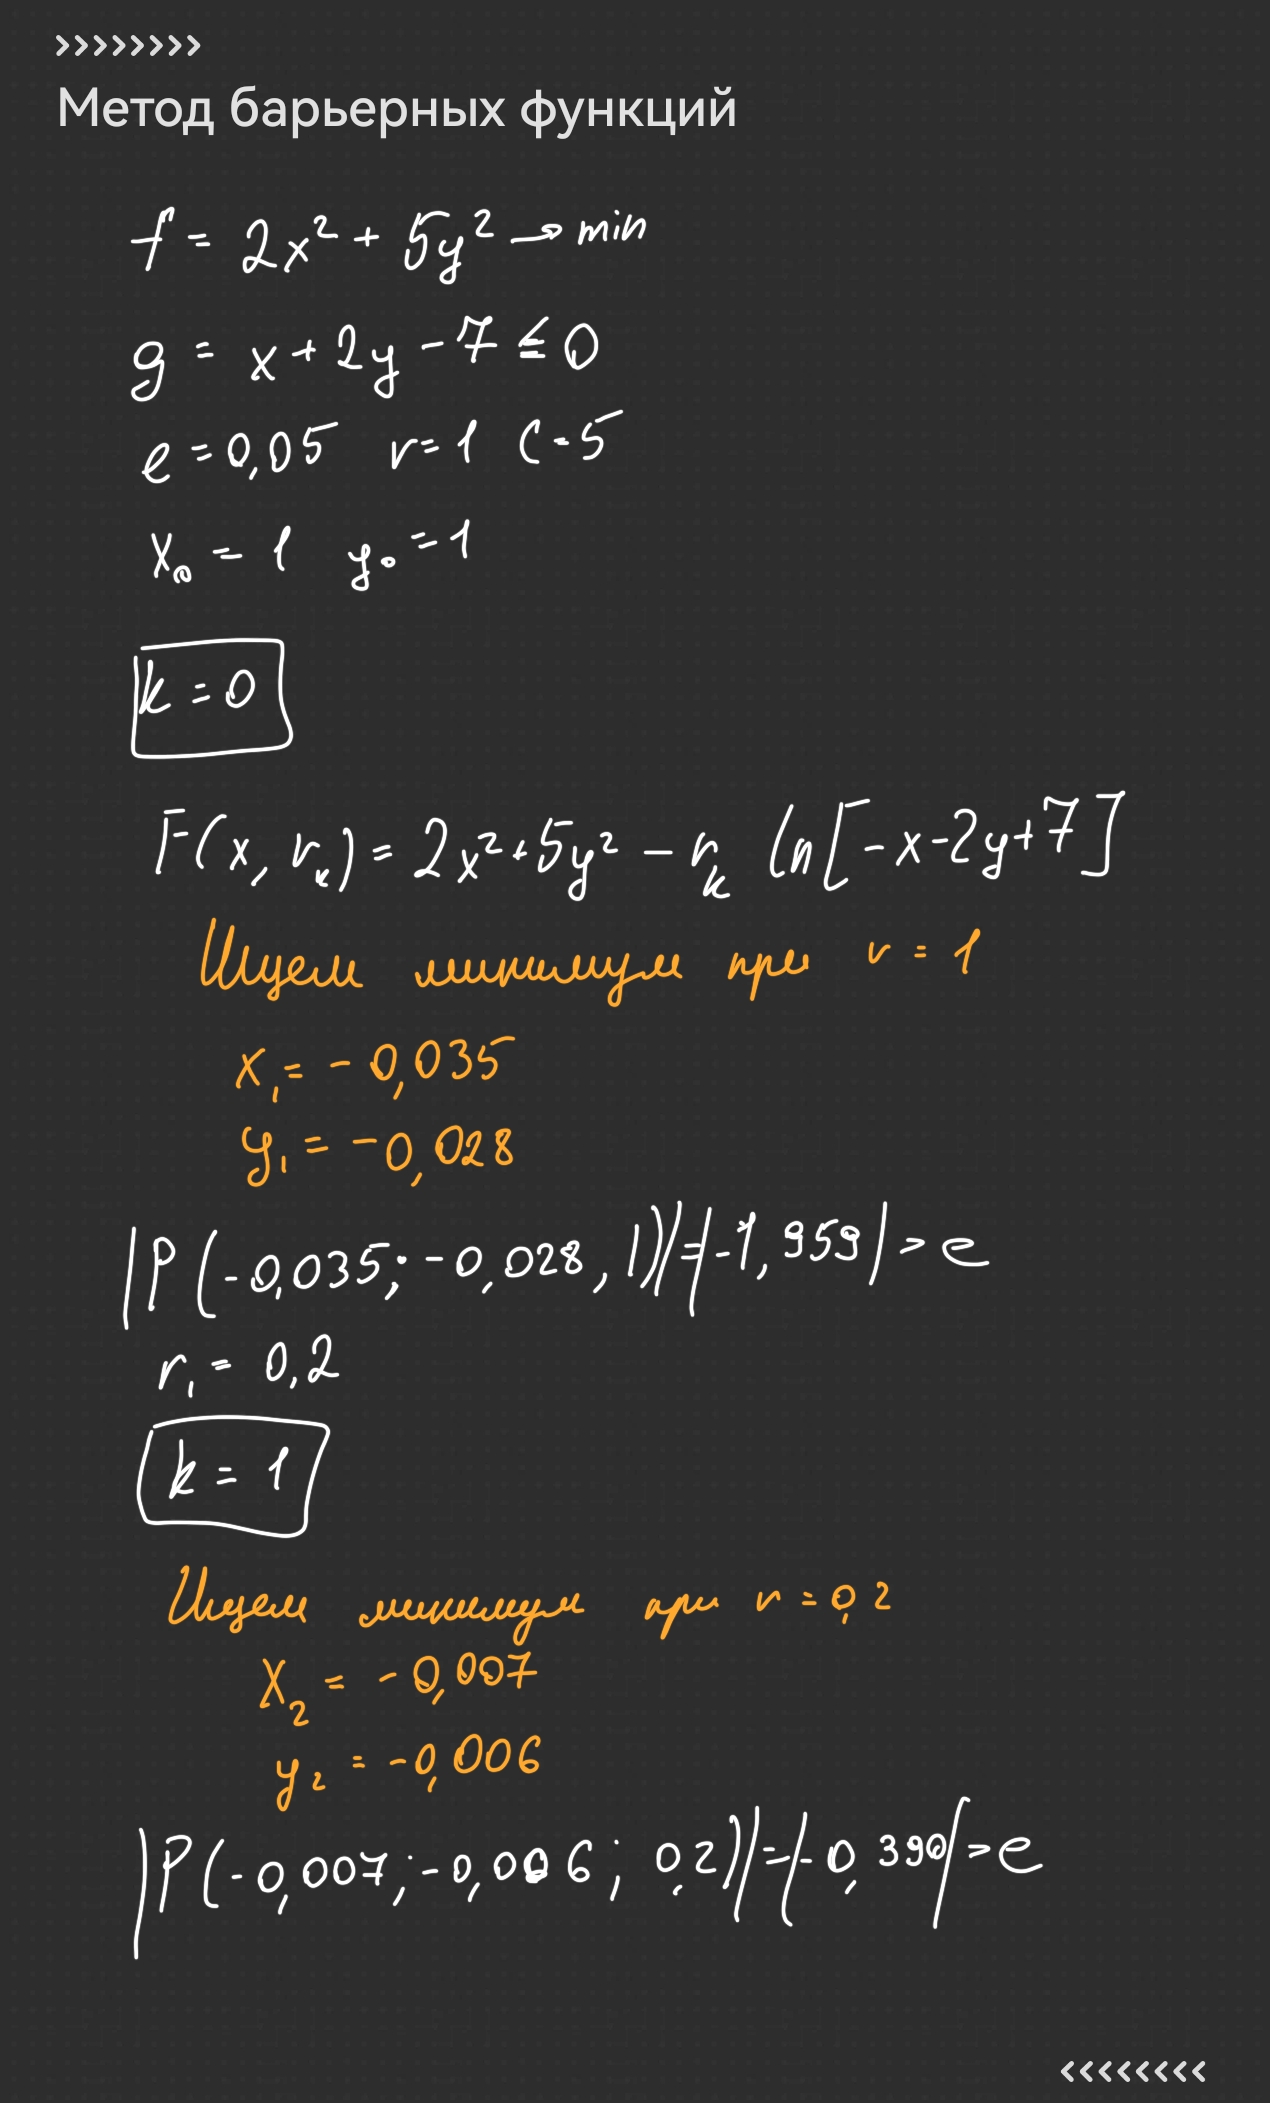 >>>>>>>>
Метод барьерных функций
f = 2x² + 5y² → min
g = x + 2y - 7 ≤ 0
e = 0,05 r = 1 C = 5
x₀ = 1 y₀ = 1
k = 0
F(x, rₖ) = 2x² + 5y² - rₖ ln[-x-2y+7]
Ищем минимум при r = 1
x₁ = -0,035
y₁ = -0,028
|P(-0,035; -0,028, 1)| = |-1,959| > e
r₁ = 0,2
k = 1
Ищем минимум при r = 0,2
x₂ = -0,007
y₂ = -0,006
|P(-0,007; -0,006; 0,2)| = |-0,390| > e
<<<<<<<<